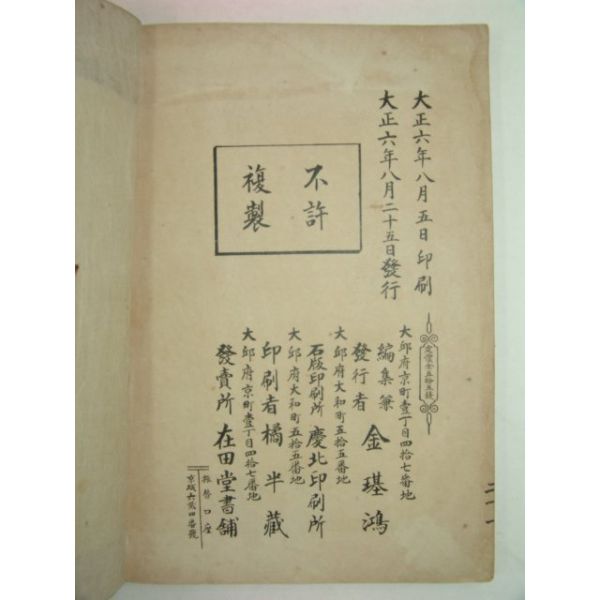 大正六年八月五日印刷
大正六年八月二十五日發行
不許
複製
定價金五拾五錢
大邱府京町壹丁目四拾七番地
編集兼
發行者 金璂鴻
大邱府大和町五拾五番地
石版印刷所 慶北印刷所
大邱府大和町五拾五番地
印刷者 橘半藏
大邱府京町壹丁目四拾七番地
發賣所 在田堂書鋪
振替口座
京城六貳四番